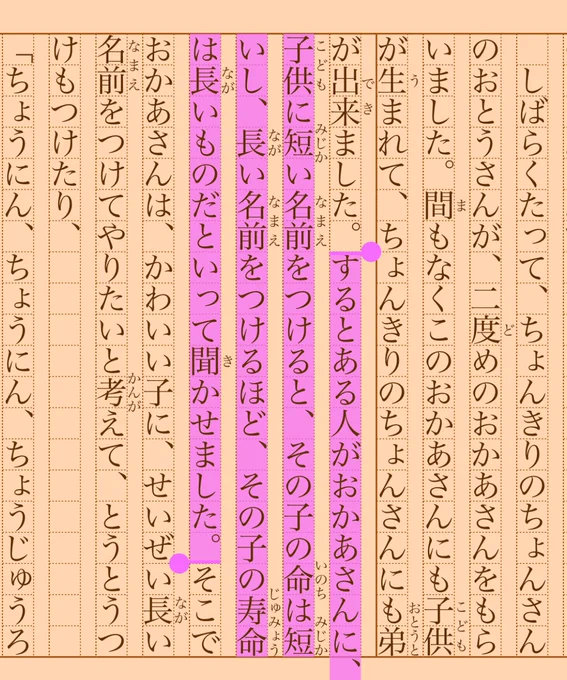 しばらくたって、ちょんきりのちょんさん
のおとうさんが、二度めのおかあさんをもら
いました。間もなくこのおかあさんにも子供
が生まれて、ちょんきりのちょんさんにも弟
が出来ました。するとある人がおかあさんに、
子供に短い名前をつけると、その子の命は短
いし、長い名前をつけるほど、その子の寿命
は長いものだといって聞かせました。そこで
おかあさんは、かわいい子に、せいぜい長い
名前をつけてやりたいと考えて、とうとうつ
けもつけたり、
「ちょうにん、ちょうにん、ちょうじゅうろ